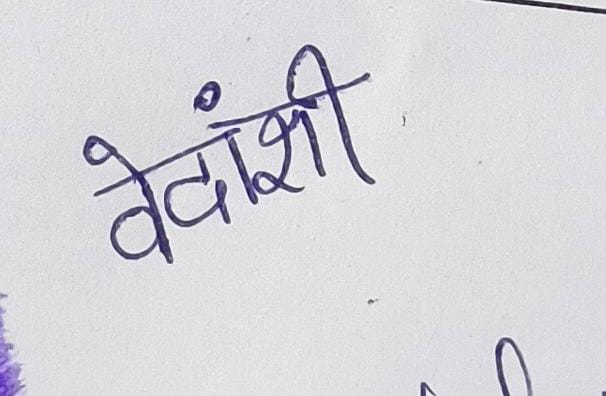 वेदांशी